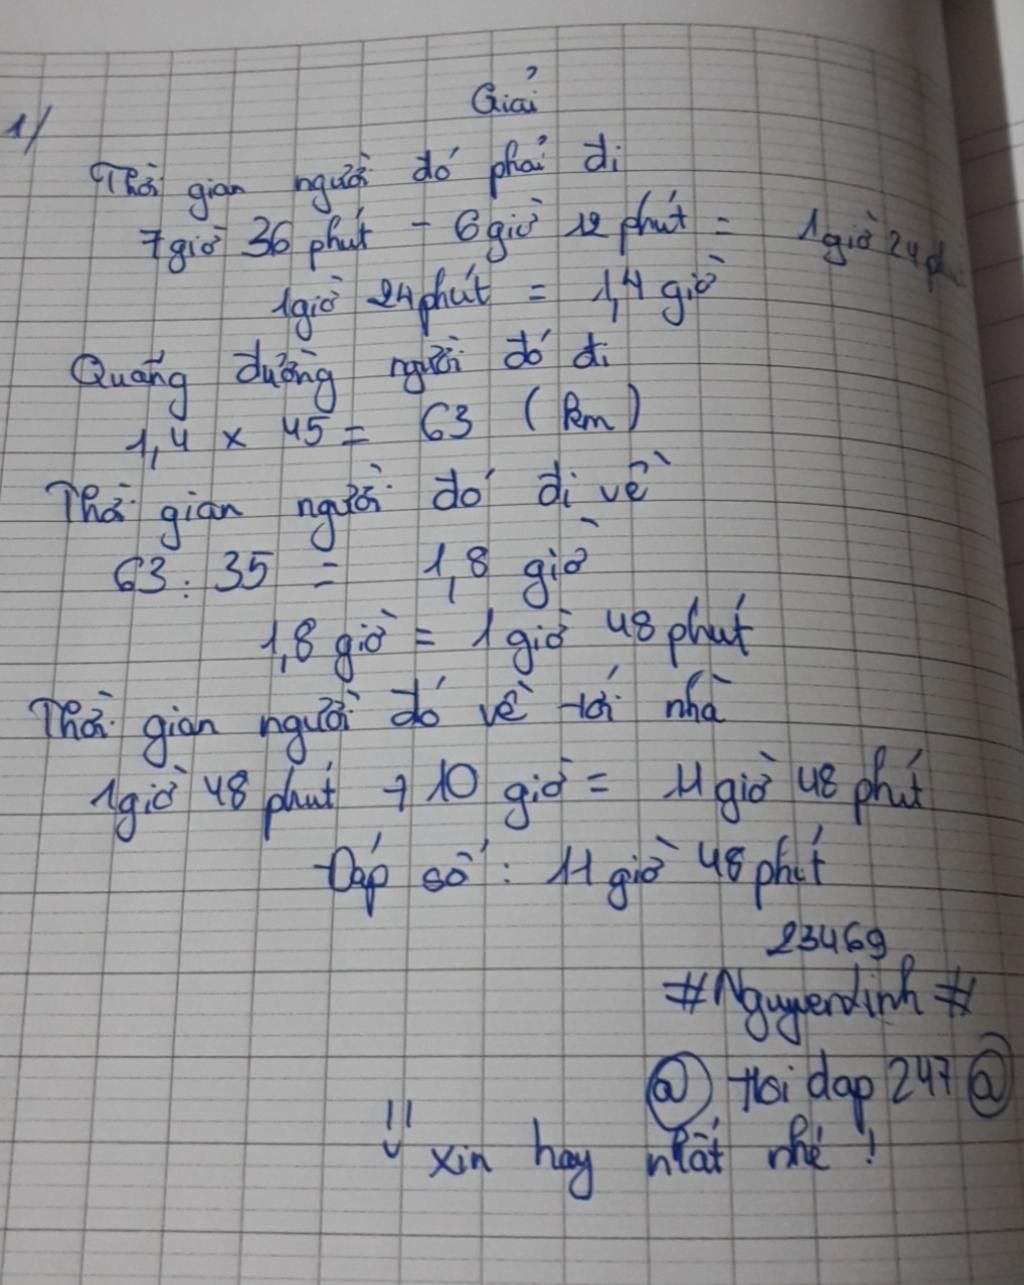 Giải
1/
Thời gian người đó phải đi
7 giờ 36 phút - 6 giờ 12 phút = 1 giờ 24 phút
1 giờ 24 phút = 1,4 giờ
Quãng đường người đó đi
1,4 x 45 = 63 (km)
Thời gian người đó đi về
63 : 35 = 1,8 giờ
1,8 giờ = 1 giờ 48 phút
Thời gian người đó về tới nhà
1 giờ 48 phút + 10 giờ = 11 giờ 48 phút
Đáp số : 11 giờ 48 phút
23469
#Nguyendinh#
@ Hoi dap 247 @
xin hay nhất nhé !